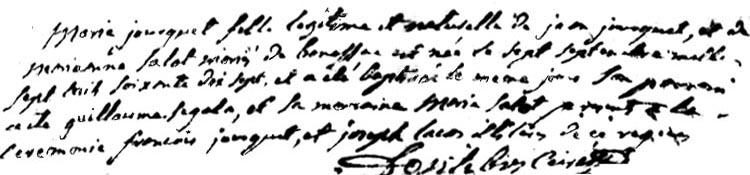 Marie jouquet fille legitime et naturelle de jean jouquet, et de
marianne salat mariés de est née le sept septembre mille
sept cent soixante dix sept, et a été baptisée le meme jour son parrain
a ete guillaume segala, et sa marraine Marie salat presents a la
ceremonie francois jouquet, et joseph lacos illiteres de ce requis